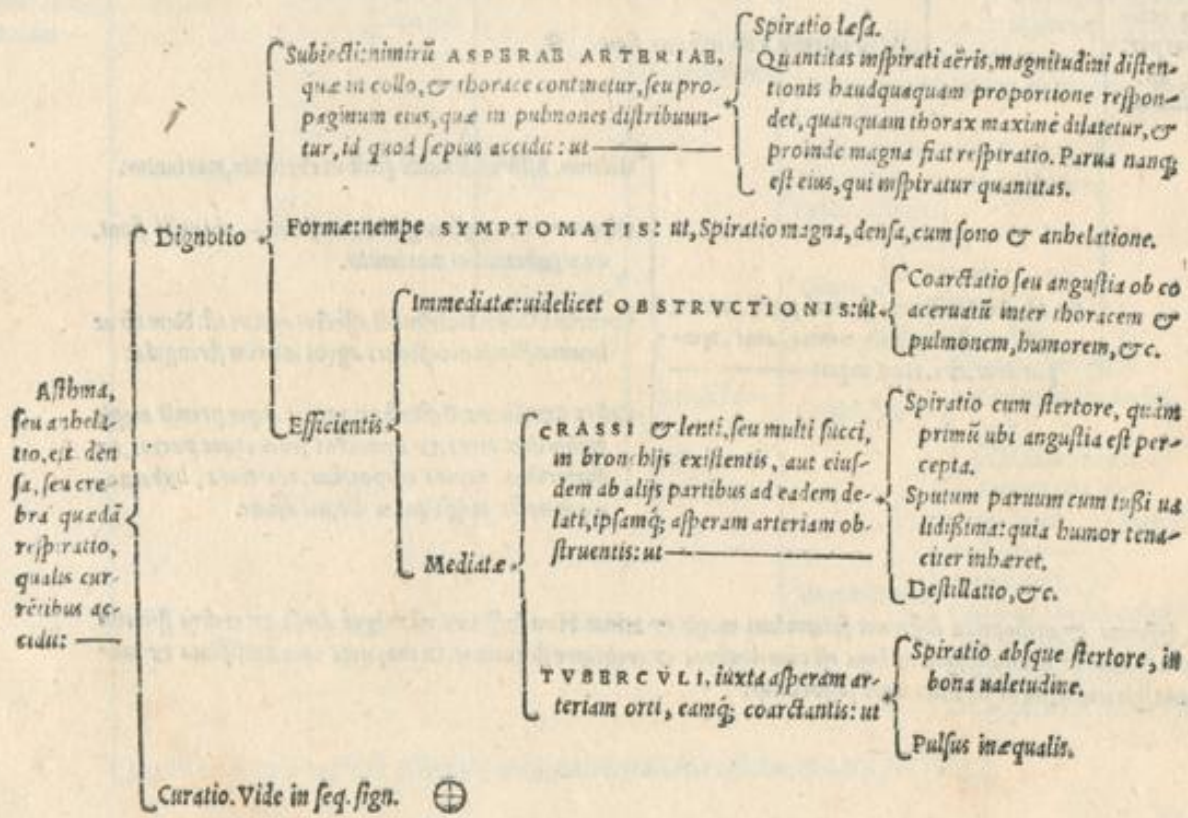 Asthma,
seu anhela-
tio, est den
sa, seu cre-
bra quædã
respiratio,
qualis cur-
rẽtibus ac-
cidit:
Dignotio
Subiecti: nimirũ ASPERAE ARTERIAE,
quæ in collo, & thorace continetur, seu pro-
paginum eius, quæ in pulmones distribuun-
tur, id quod sæpius accidit: ut
Spiratio læsa.
Quantitas inspirati aëris, magnitudini disten-
tionis haudquaquam proportione respon-
det, quanquam thorax maximè dilatetur, &
proinde magna fiat respiratio. Parua nanq;
est eius, qui inspiratur quantitas.
Formæ: nempe SYMPTOMATIS: ut, Spiratio magna, densa, cum sono & anhelatione.
Efficientis
Immediatæ: uidelicet OBSTRVCTIONIS: ut
Coarctatio seu angustia ob co
aceruatũ inter thoracem &
pulmonem, humorem, &c.
Mediatæ
CRASSI & lenti, seu multi succi,
in bronchijs existentis, aut eius-
dem ab alijs partibus ad eadem de-
lati, ipsamq; asperam arteriam ob-
struentis: ut
Spiratio cum stertore, quàm
primũ ubi angustia est per-
cepta.
Sputum paruum cum tußi ua
lidißima: quia humor tena-
citer inhæret.
Destillatio, &c.
TVBERCVLI, iuxta asperam ar-
teriam orti, eamq; coarctantis: ut
Spiratio absque stertore, in
bona ualetudine.
Pulsus inæqualis.
Curatio. Vide in seq. sign.